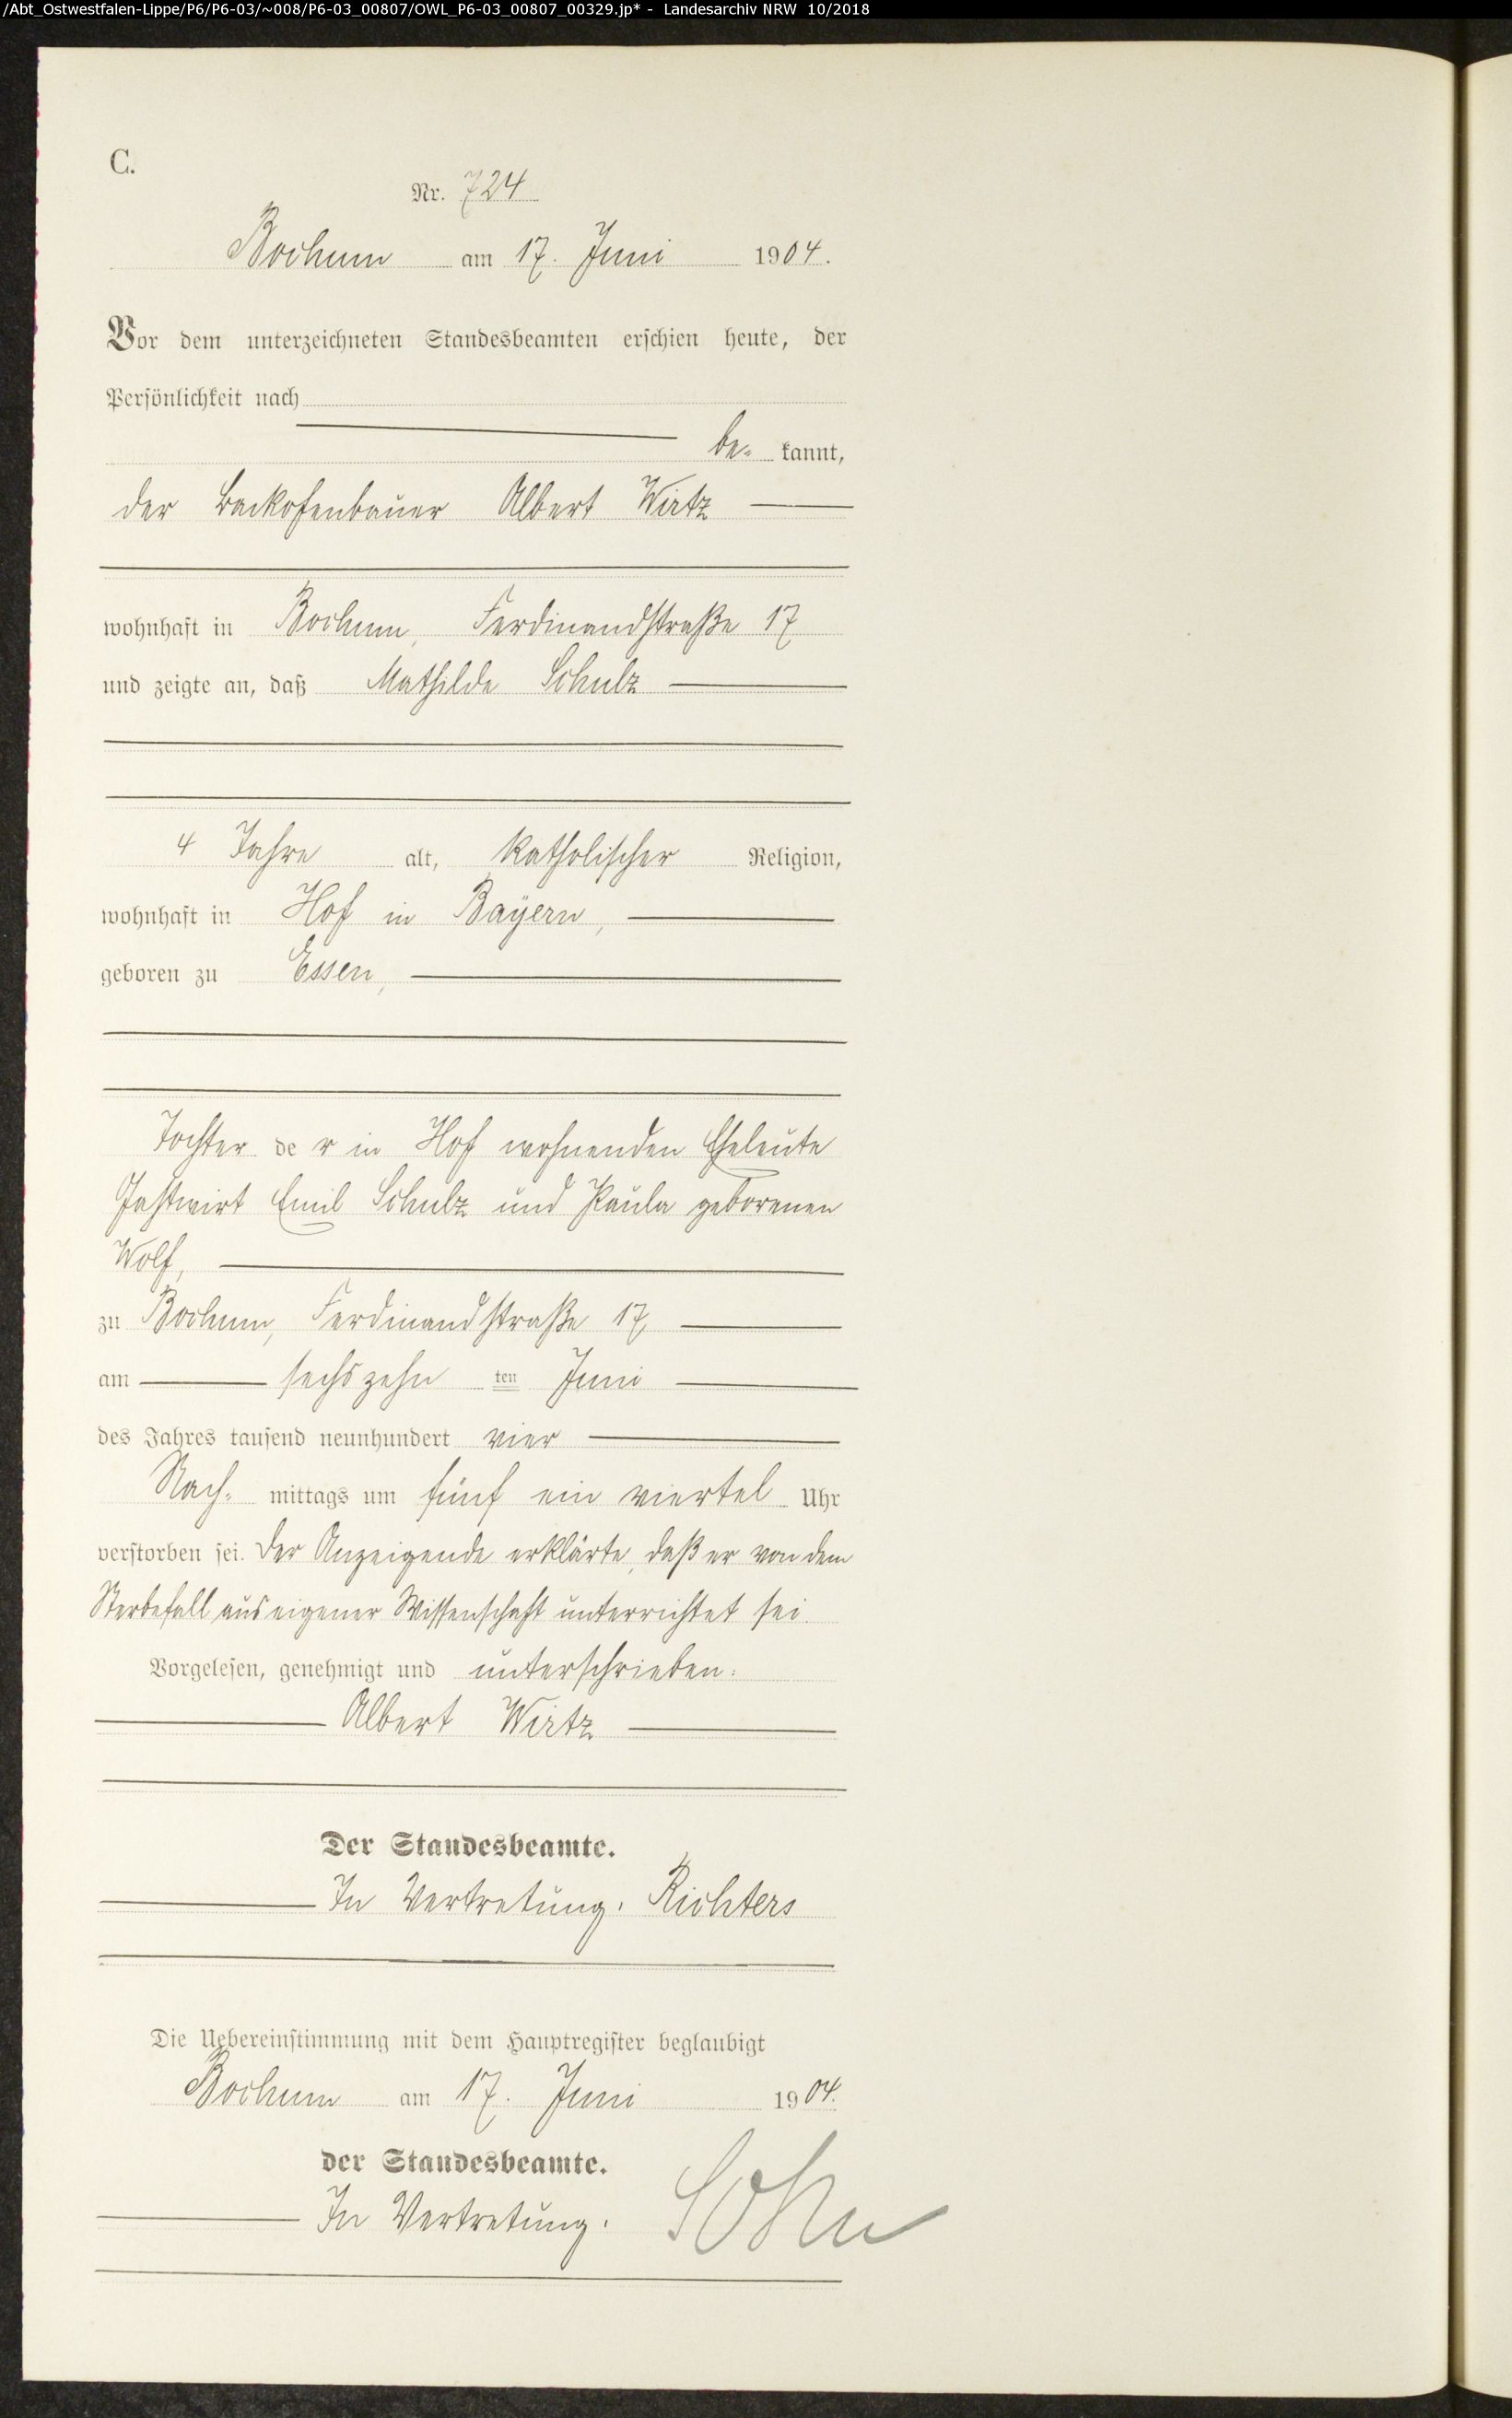 /Abt_Ostwestfalen-Lippe/P6/P6-03/~008/P6-03_00807/OWL_P6-03_00807_00329.jp* - Landesarchiv NRW 10/2018
C.
Nr. 724
Bochum am 17. Juni 1904.
Vor dem unterzeichneten Standesbeamten erschien heute, der
Persönlichkeit nach
be- kannt,
der Backofenbauer Albert Wirtz
wohnhaft in Bochum, Ferdinandstraße 17
und zeigte an, daß Mathilde Schulz
4 Jahre alt, katholischer Religion,
wohnhaft in Hof in Bayern,
geboren zu Essen,
Tochter de r in Hof wohnenden Eheleute
Gastwirt Emil Schulz und Paula geborenen
Wolf,
zu Bochum, Ferdinandstraße 17,
am sechszehn ten Juni
des Jahres tausend neunhundert vier
Nach- mittags um fünf ein viertel Uhr
verstorben sei. Der Anzeigende erklärte, daß er von dem
Sterbefall aus eigener Wissenschaft unterrichtet sei.
Vorgelesen, genehmigt und unterschrieben.
Albert Wirtz
Der Standesbeamte.
In Vertretung. Richters
Die Uebereinstimmung mit dem Hauptregister beglaubigt
Bochum am 17. Juni 1904.
der Standesbeamte.
In Vertretung.